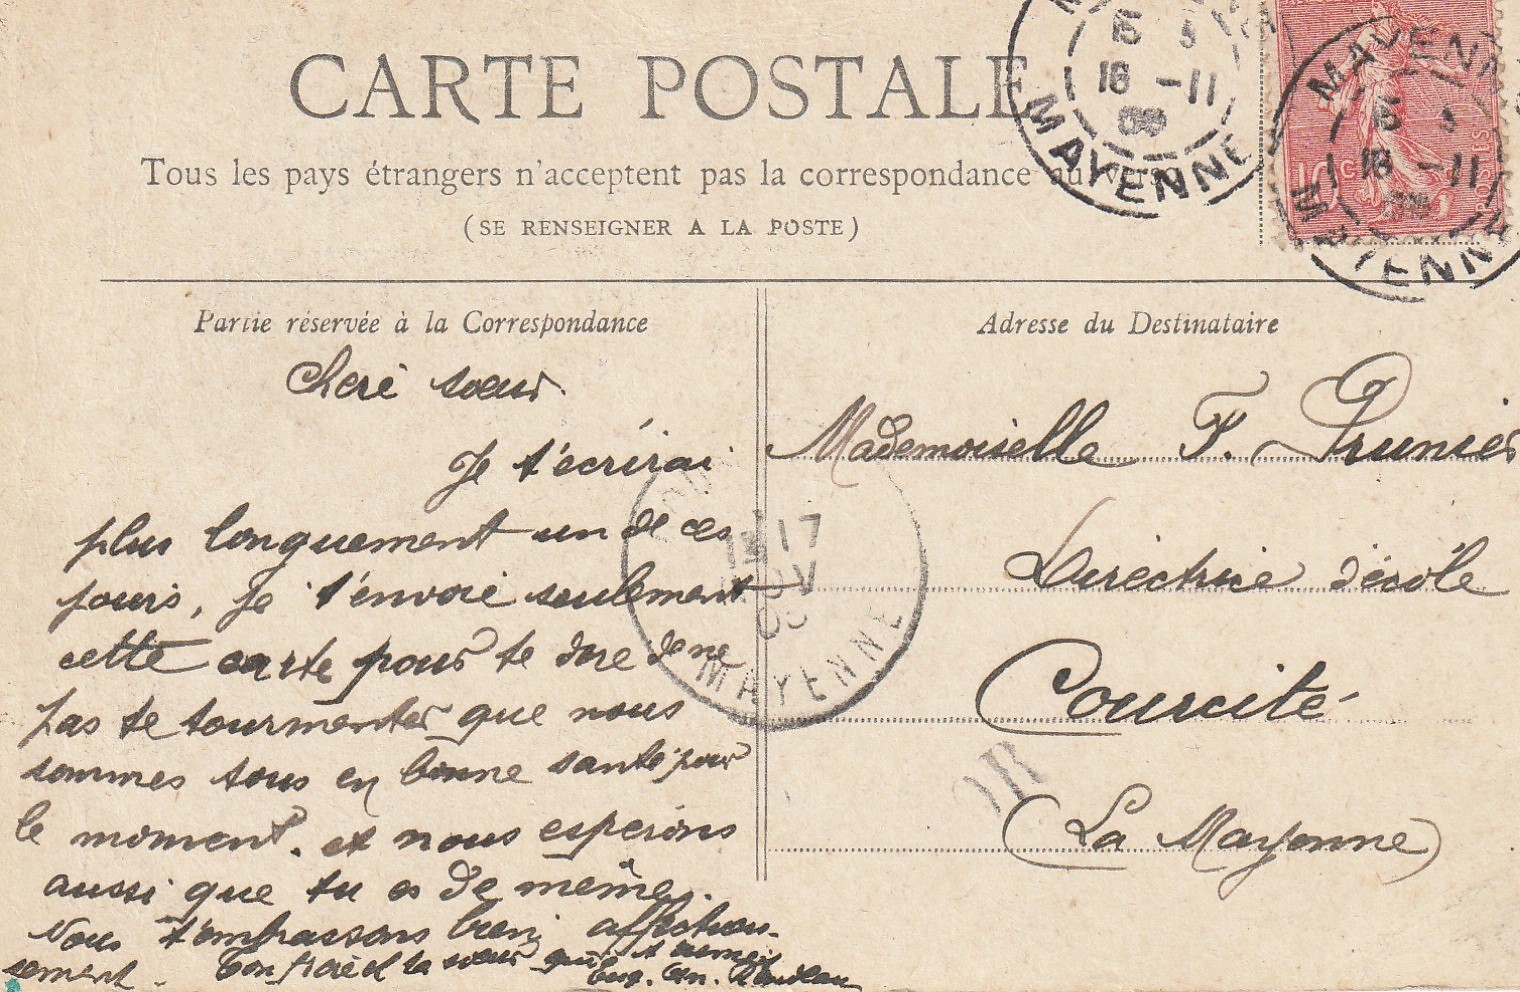 CARTE POSTALE
Tous les pays étrangers n'acceptent pas la correspondance au verso
(SE RENSEIGNER A LA POSTE)
MAYENNE
18 -11
MAYENNE
18 -11
10c
POSTES
Partie réservée à la Correspondance
Cheré sœur.
Je t'écrirai
plus longuement un de ces
jours, je t'envoie seulement
cette carte pour te dire de ne
pas te tourmenter que nous
sommes tous en bonne santé pour
le moment. et nous esperons
aussi que tu es de même.
Nous t'embrassons bien affectueu-
sement. Ton frère et ta sœur qui t'aiment
Adresse du Destinataire
Mademoiselle F. Prunier
Directrice d'école
Courcité
(La Mayenne)
17
MAYENNE
OR